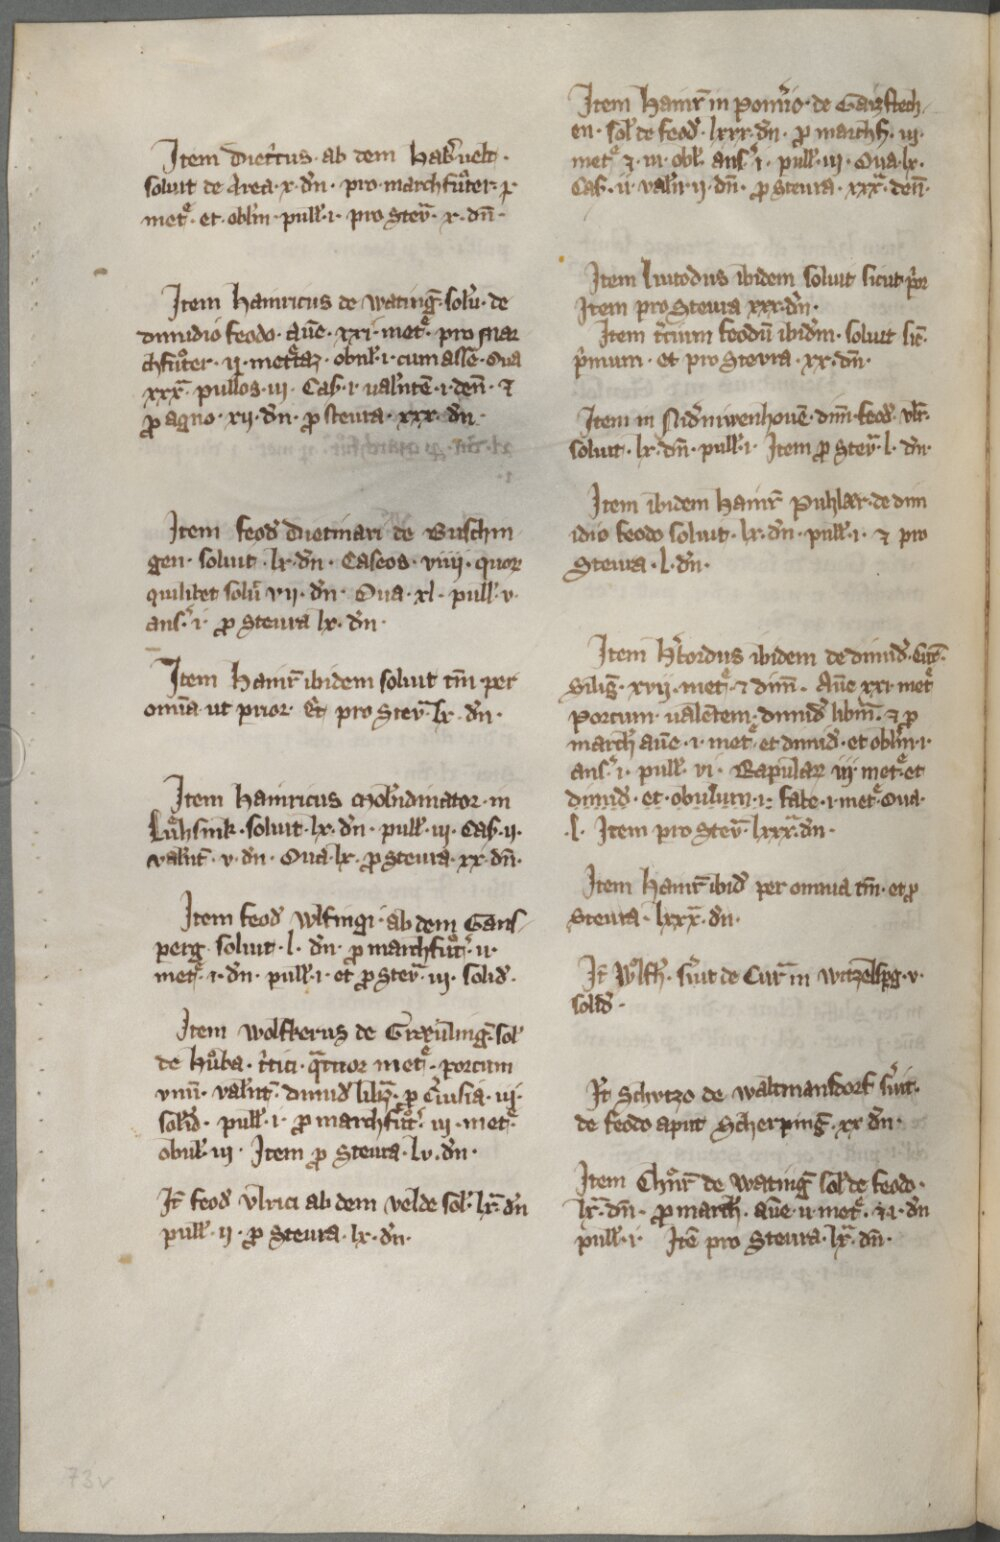 Item Dietr̄cus · ab dem Hab̄velt ·
soluit de Area · x · dn̄ · pro · marchfůter · i ·
metᵉ · et obl̄m · pull̄ · i · pro Steur̄ · x · dn̄ ·
Item Hainricus de Wating̅ · solū · de
dimidio feodo · aūe · xxi · metᵉ · pro mar
chfůter · ii · met · obul̄ · i · cum asse · Oua
xxx · pullos · iii · Cas̄ · i · ual̄ntē · i · den̄ · et
p̱ agno · xii · dn̄ · p̱ steura · xxx · dn̄ ·
Item feod̄ Dietmari de Buschin
gen · soluit · lx · dn̄ · Caseos · viiii · quor
quilibet solū vii · dn̄ · Oua · xl · pull̄ · v ·
ans̄ · i · p̱ steura lx · dn̄ ·
Item Hainr̄ ibidem soluit tm̄ per
omīa ut prior · Et pro steur̄ · lx · dn̄ ·
Item Hainricus molendinator · in
soluit · lx · dn̄ · pull̄ · iii · Cas̄ · ii ·
valn̄t · v · dn̄ · Oua · lx · p̱ steura · xx · dn̄ ·
Item feod̄ Wlfingi · ab dem Gans
perg · soluit · l · dn̄ · p̱ marchfůt̄ · ii ·
metᵉ · i · dn̄ · pull̄ · i · et p̱ steur̄ · iii · solid̄ ·
Item Wolfkerus de sol̄
de hůba · tr̄tici · qᵃtuor metᵉ · porcum
vnū · valn̄t · dimid̄ libr̄ · p̱ · iii ·
solid̄ · pull̄ · i · p̱ marchfůt̄ · iii · metᵉ
obul̄ · iii · Item p̱ steura · lv · dn̄ ·
It̄ feod̄ Vlrici ab dem velde sol̄ · lx · dn̄
pull̄ · ii · p̱ Steura · lx · dn̄ ·
Item Hainr̄ in pomīo · de Gaizstech
en · sol̄ de feod̄ · lxxx · dn̄ · p̱ marchf̄ · iii ·
metᵉ et · iii · obl̄ · ans̄ · i · pull̄ · iii · Oua · lx ·
Cas̄ · ii · valn̄ · ii · dn̄ · p̱ steura · xxx · den̄ ·
Item Liutoldus ibidem soluit sicut p̄or
Item pro Steura xxx · dn̄ ·
Item tc̄ium feodū ibidm̄ · soluit sic̄ ·
p̄mum · et pro steura · xx · dn̄ ·
Item in Nid̄niwenhouē · dim̄ · feod̄ vlr̄ ·
soluit · lx · dn̄ · pull̄ · i · Item p̱ steur̄ · l · dn̄ ·
Item ibidem Hainr̄ Puhlær · de dim
idio feodo soluit · lx · dn̄ · pull̄ · i · et pro
Steura · l · dn̄ ·
Item H̄tordus ibidem de dimid̄ · Cur̄ ·
Silig̅ · xvii · metᵉ · et dim̄ · Aūe xxi · metᵉ
Porcum · ualētem · dimid̄ libr̄m · et p̱
march̄ aūe · i · metᵉ et dimid̄ · et obl̄m · i ·
ans̄ · i · pull̄ · vi · Rapular̄ iii · metᵉ · et
dimid̄ · et obulum · i · fabe · i · metᵉ · Oua ·
· l · Item pro Steur̄ · lxxx · dn̄ ·
Item Hainr̄ ibid̄ per omnia tm̄ · et p̱
Steura · lxxx · dn̄ ·
It̄ Wolfh̄ · s̄uit de Cur̄ in · v ·
solid̄ ·
It̄ Schvtzo de Waltmansdorf s̄uit ·
de feodo aput Scherping̅ · xx · dn̄ ·
Item Chůnr̄ de Wating̅ sol̄ de feodo ·
lx · dn̄ · p̱ march̄ · aūe · ii · metᵉ · et · i · dn̄
pull̄ · i · Itē pro Steura · lx · dn̄ ·
73v